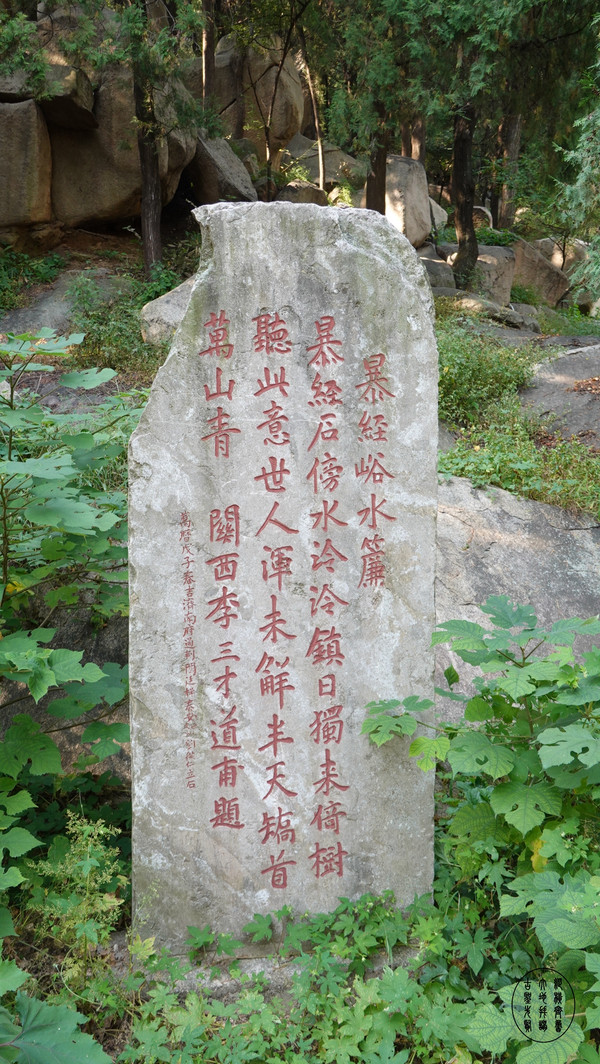 暴經峪水簾
暴經石傍水泠泠鎮日獨来倚樹
聽此意世人渾未觧半天矯首
萬山青 關西李三才道甫題
萬曆戊子春吉濟南府通判 立石